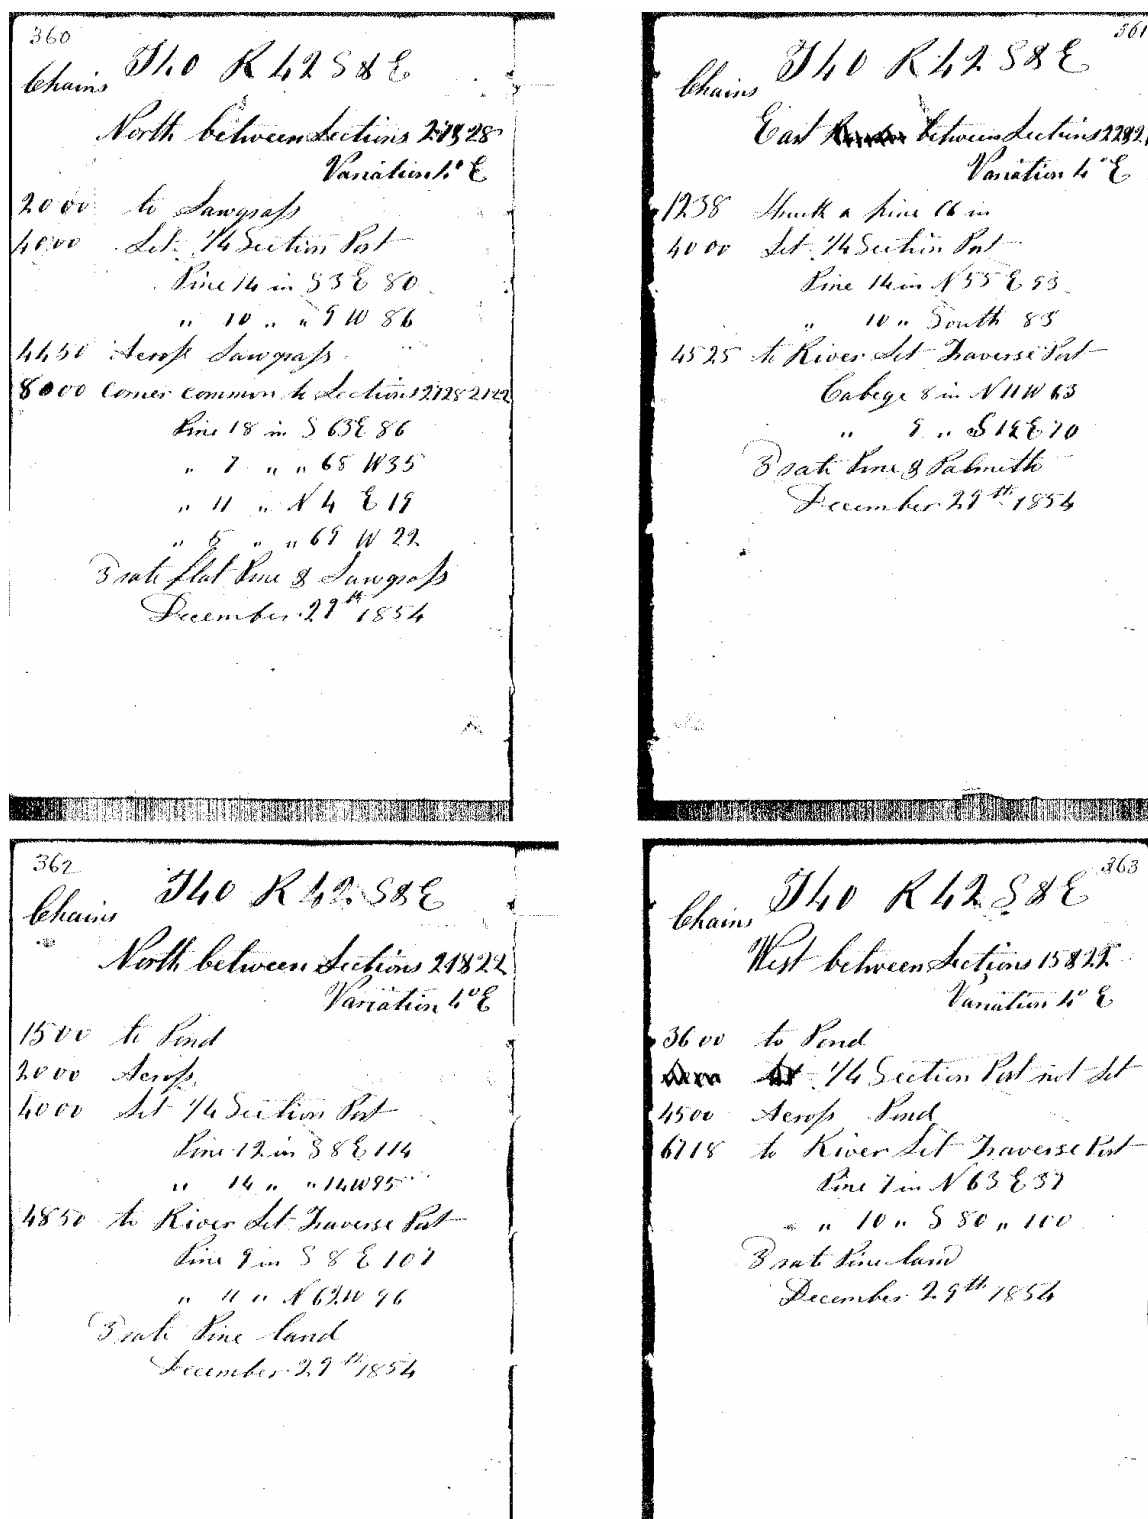 360
T40 R42 S & E
Chains
North between Sections 27 & 28
Variation 4° E
2000 to Sawgrass
4000 Set 1/4 Section Post
Pine 14 in S 3 E 80
" 10 " " 9 W 86
4450 Across Sawgrass
8000 Corner common to Sections 27 28 21 22
Pine 18 in S 63 E 86
" 7 " " 68 W 35
" 11 " N 4 E 19
" 5 " " 69 W 22
3 rate flat Pine & Sawgrass
December 29th 1854
361
T40 R42 S & E
Chains
East between Sections 22 & 2
Variation 4° E
1238 Struck a pine 16 in
4000 Set 1/4 Section Post
Pine 14 in N 55 E 93
" 10 " South 83
4525 to River Set Traverse Post
Cabege 8 in N 11 W 63
" 9 " S 18 E 70
3 rate Pine & Palmetto
December 29th 1854
362
T40 R42 S & E
Chains
North between Sections 21 & 22
Variation 4° E
1500 to Pond
2000 Across
4000 Set 1/4 Section Post
Pine 12 in S 8 E 114
" 14 " " 14 W 95
4850 to River Set Traverse Post
Pine 9 in S 8 E 107
" 11 " N 62 W 96
3 rate Pine land
December 29th 1854
363
T40 R42 S & E
Chains
West between Sections 15 & 22
Variation 4° E
3600 to Pond
1/4 Section Post not Set
4500 Across Pond
6718 to River Set Traverse Post
Pine 7 in N 63 E 37
" 10 " S 80 " 100
3 rate Pine land
December 29th 1854